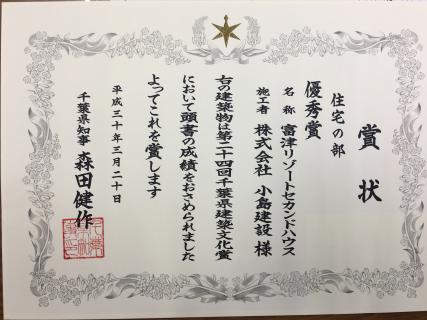 賞状
住宅の部
優秀賞
名称 富津リゾートセカンドハウス
施工者 株式会社 小島建設 様
右の建築物は第二十四回千葉県建築文化賞
において頭書の成績をおさめられました
よってこれを賞します
平成三十年三月二十日
千葉県知事 森田健作